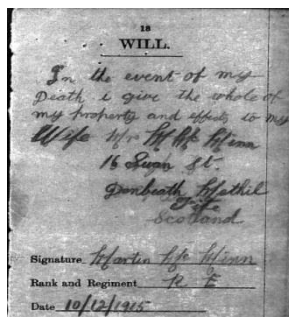 18
WILL.
In the event of my
Death i give the whole of
my property and effects to my
Wife Mrs
16 St.
Denbeath Methil
Fife
Scotland
Signature Martin
Rank and Regiment R E
Date 10/12/1915